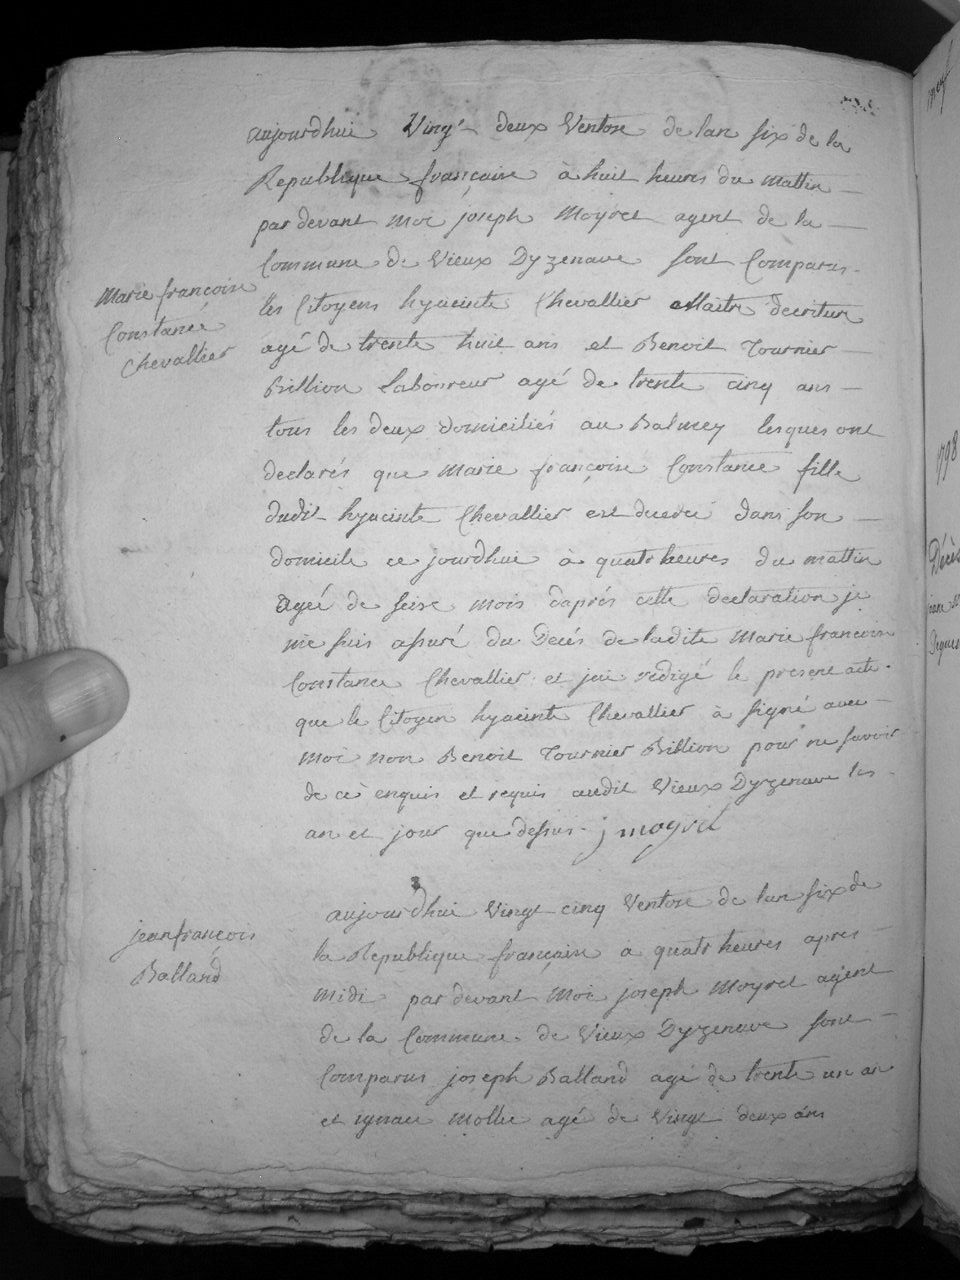 aujourdhui Vingt deux Ventose de lan six de la
Republique française à huit heures du mattin
par devant moi joseph Moyret agent de la
Commune de Vieux Dyzenave sont Comparus
les Citoyens hyacinte Chevallier Maitre decriture
agé de trente huit ans et Benoit Tournier
Billion Laboureur agé de trente cinq ans
tous les deux domiciliés au Balmey lesques ont
declarés que Marie françoise Constance fille
dudit hyacinte Chevallier est decedé dans son
domicile ce jourdhui à quatr heures du mattin
agéé de seise mois daprés cette declaration je
me suis assuré du Decés de ladite Marie francoise
Constance Chevallier et jai redigé le present acte
que le Citoyen hyacinte Chevallier à signé avec
moi non Benoit Tournier Billion pour ne savoir
de ce enquis et requis audit Vieux Dyzenave les
an et jour que dessus. j moyret
Marie françoise
Constance
Chevallier
aujourdhui Vingt cinq Ventose de lan six de
la Republique française a quatr heures apres
midi par devant moi joseph Moyret agent
de la Commune de Vieux Dyzenave sont
Comparus joseph Balland agé de trente un an
et ignace Mollie agé de Vingt deux ans
jean françois
Balland
1798
Décès